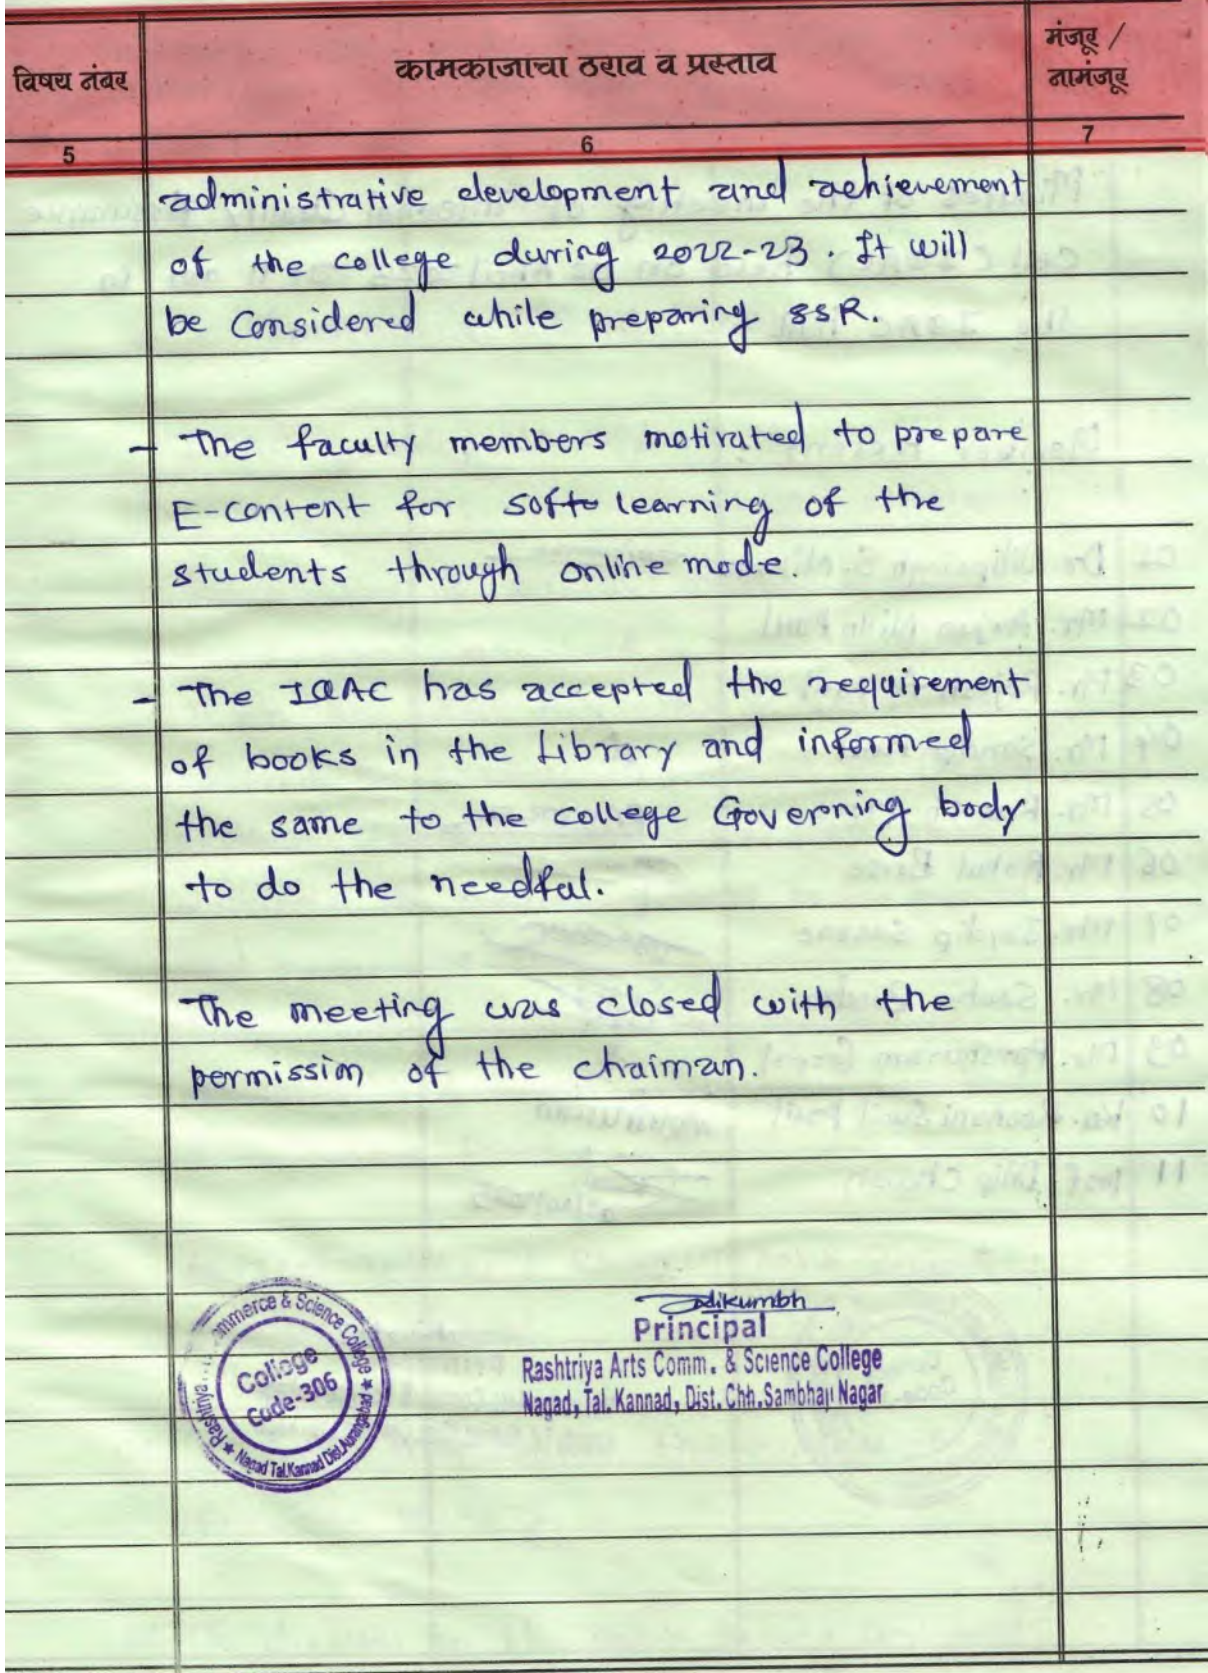 विषय नंबर
कामकाजाचा ठराव व प्रस्ताव
मंजूर /
नामंजूर
5
6
7
administrative development and achievement
of the college during 2022-23. It will
be Considered while preparing SSR.
- The faculty members motivated to prepare
E-content for soft learning of the
students through online mode.
- The IQAC has accepted the requirement
of books in the Library and informed
the same to the college Governing body
to do the needful.
The meeting was closed with the
permission of the chaiman.
Principal
Rashtriya Arts Comm. & Science College
Nagad, Tal. Kannad, Dist. Chh.Sambhaji Nagar
Rashtriya
Commerce & Science College
College
Code-306
Nagad Tal.Kannad Dist.Aurangabad